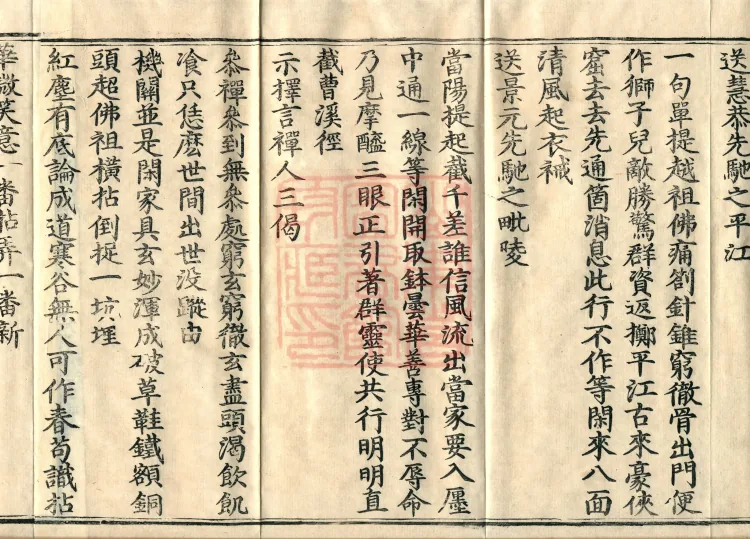 送慧恭先馳之平江
一句單提越祖佛痛劄針錐窮徹骨出門便
作獅子兒敵勝驚群資返擲平江古來豪俠
窟去去先通箇消息此行不作等閑來八面
清風起衣祴
送景元先馳之毗陵
當陽提起截千差誰信風流出當家要入廛
中通一線等閑開取鉢曇華善專對不辱命
乃見摩醯三眼正引著群靈使共行明明直
截曹溪徑
示擇言禪人三偈
叅禪叅到無叅處窮玄窮徹玄盡頭渴飲飢
飡只恁麽世間出世没蹤由
機關並是閑家具玄妙渾成破草鞋鐵額銅
頭超佛祖橫拈倒捉一坑埋
紅塵有底論成道寒谷無人可作春苟識拈
華微笑意一番拈弄一番新